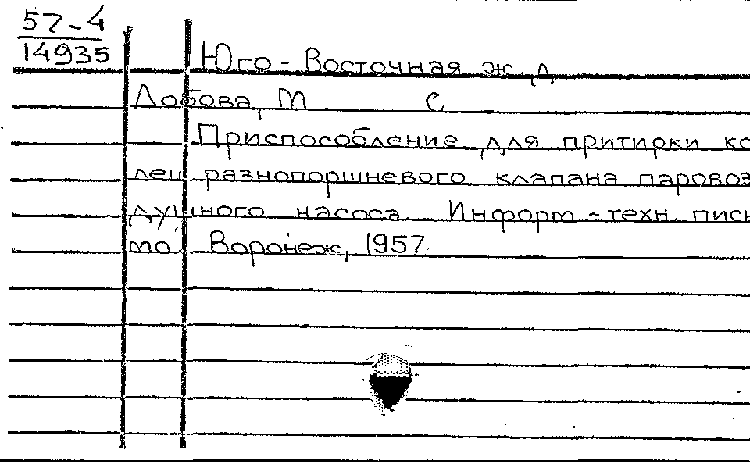 57-4
14935
Юго-Восточная ж.д.
Лобова, М С.
Приспособление для притирки ко
лец разнопоршневого клапана паровоз
душного насоса. Информ-техн. пись
мо. Воронеж, 1957.